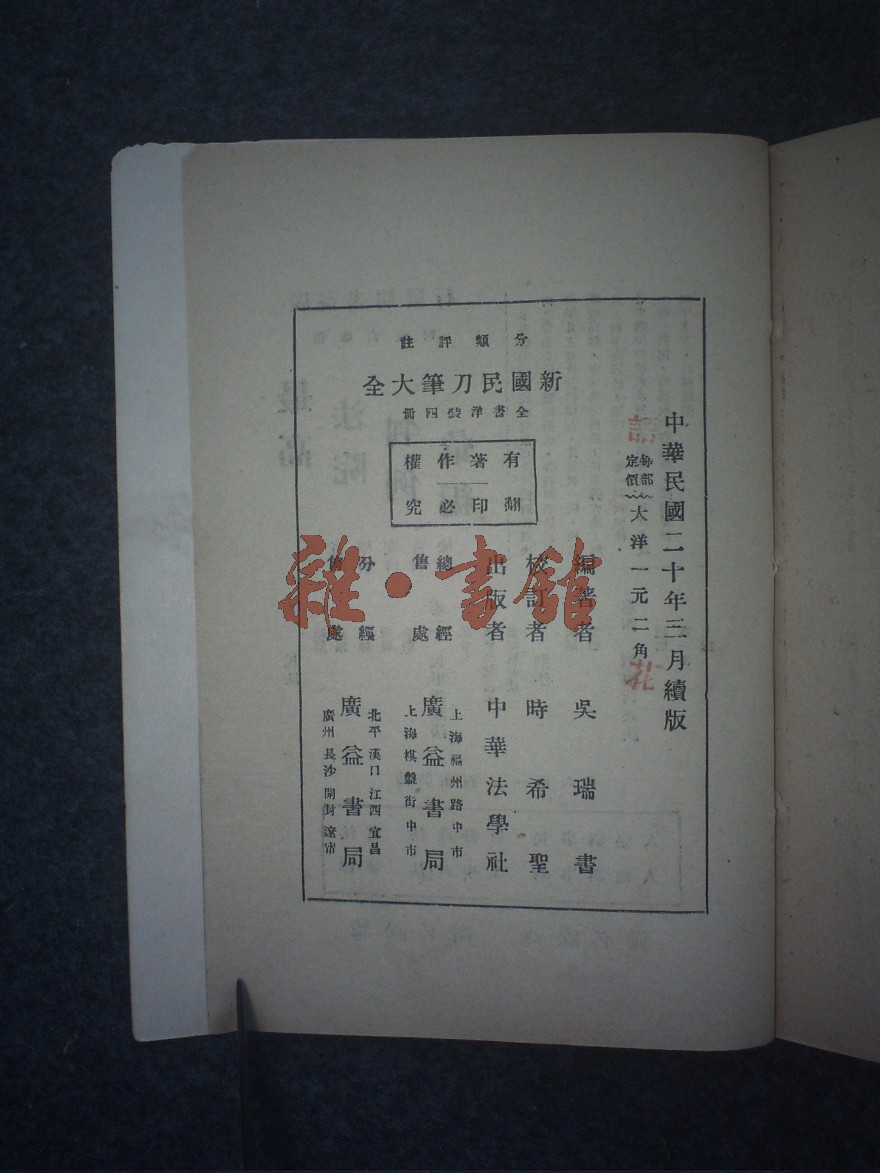 中華民國二十年三月續版
每部定價 大洋一元二角
分類評註
新國民刀筆大全
全書洋裝四冊
有著作權
翻印必究
編著者 吳瑞書
校訂者 時希聖
出版者 中華法學社
總經售處 廣益書局
上海福州路中市
上海棋盤街中市
分經售處 廣益書局
北平漢口江西宜昌
廣州長沙開封遼甯
雜·書館